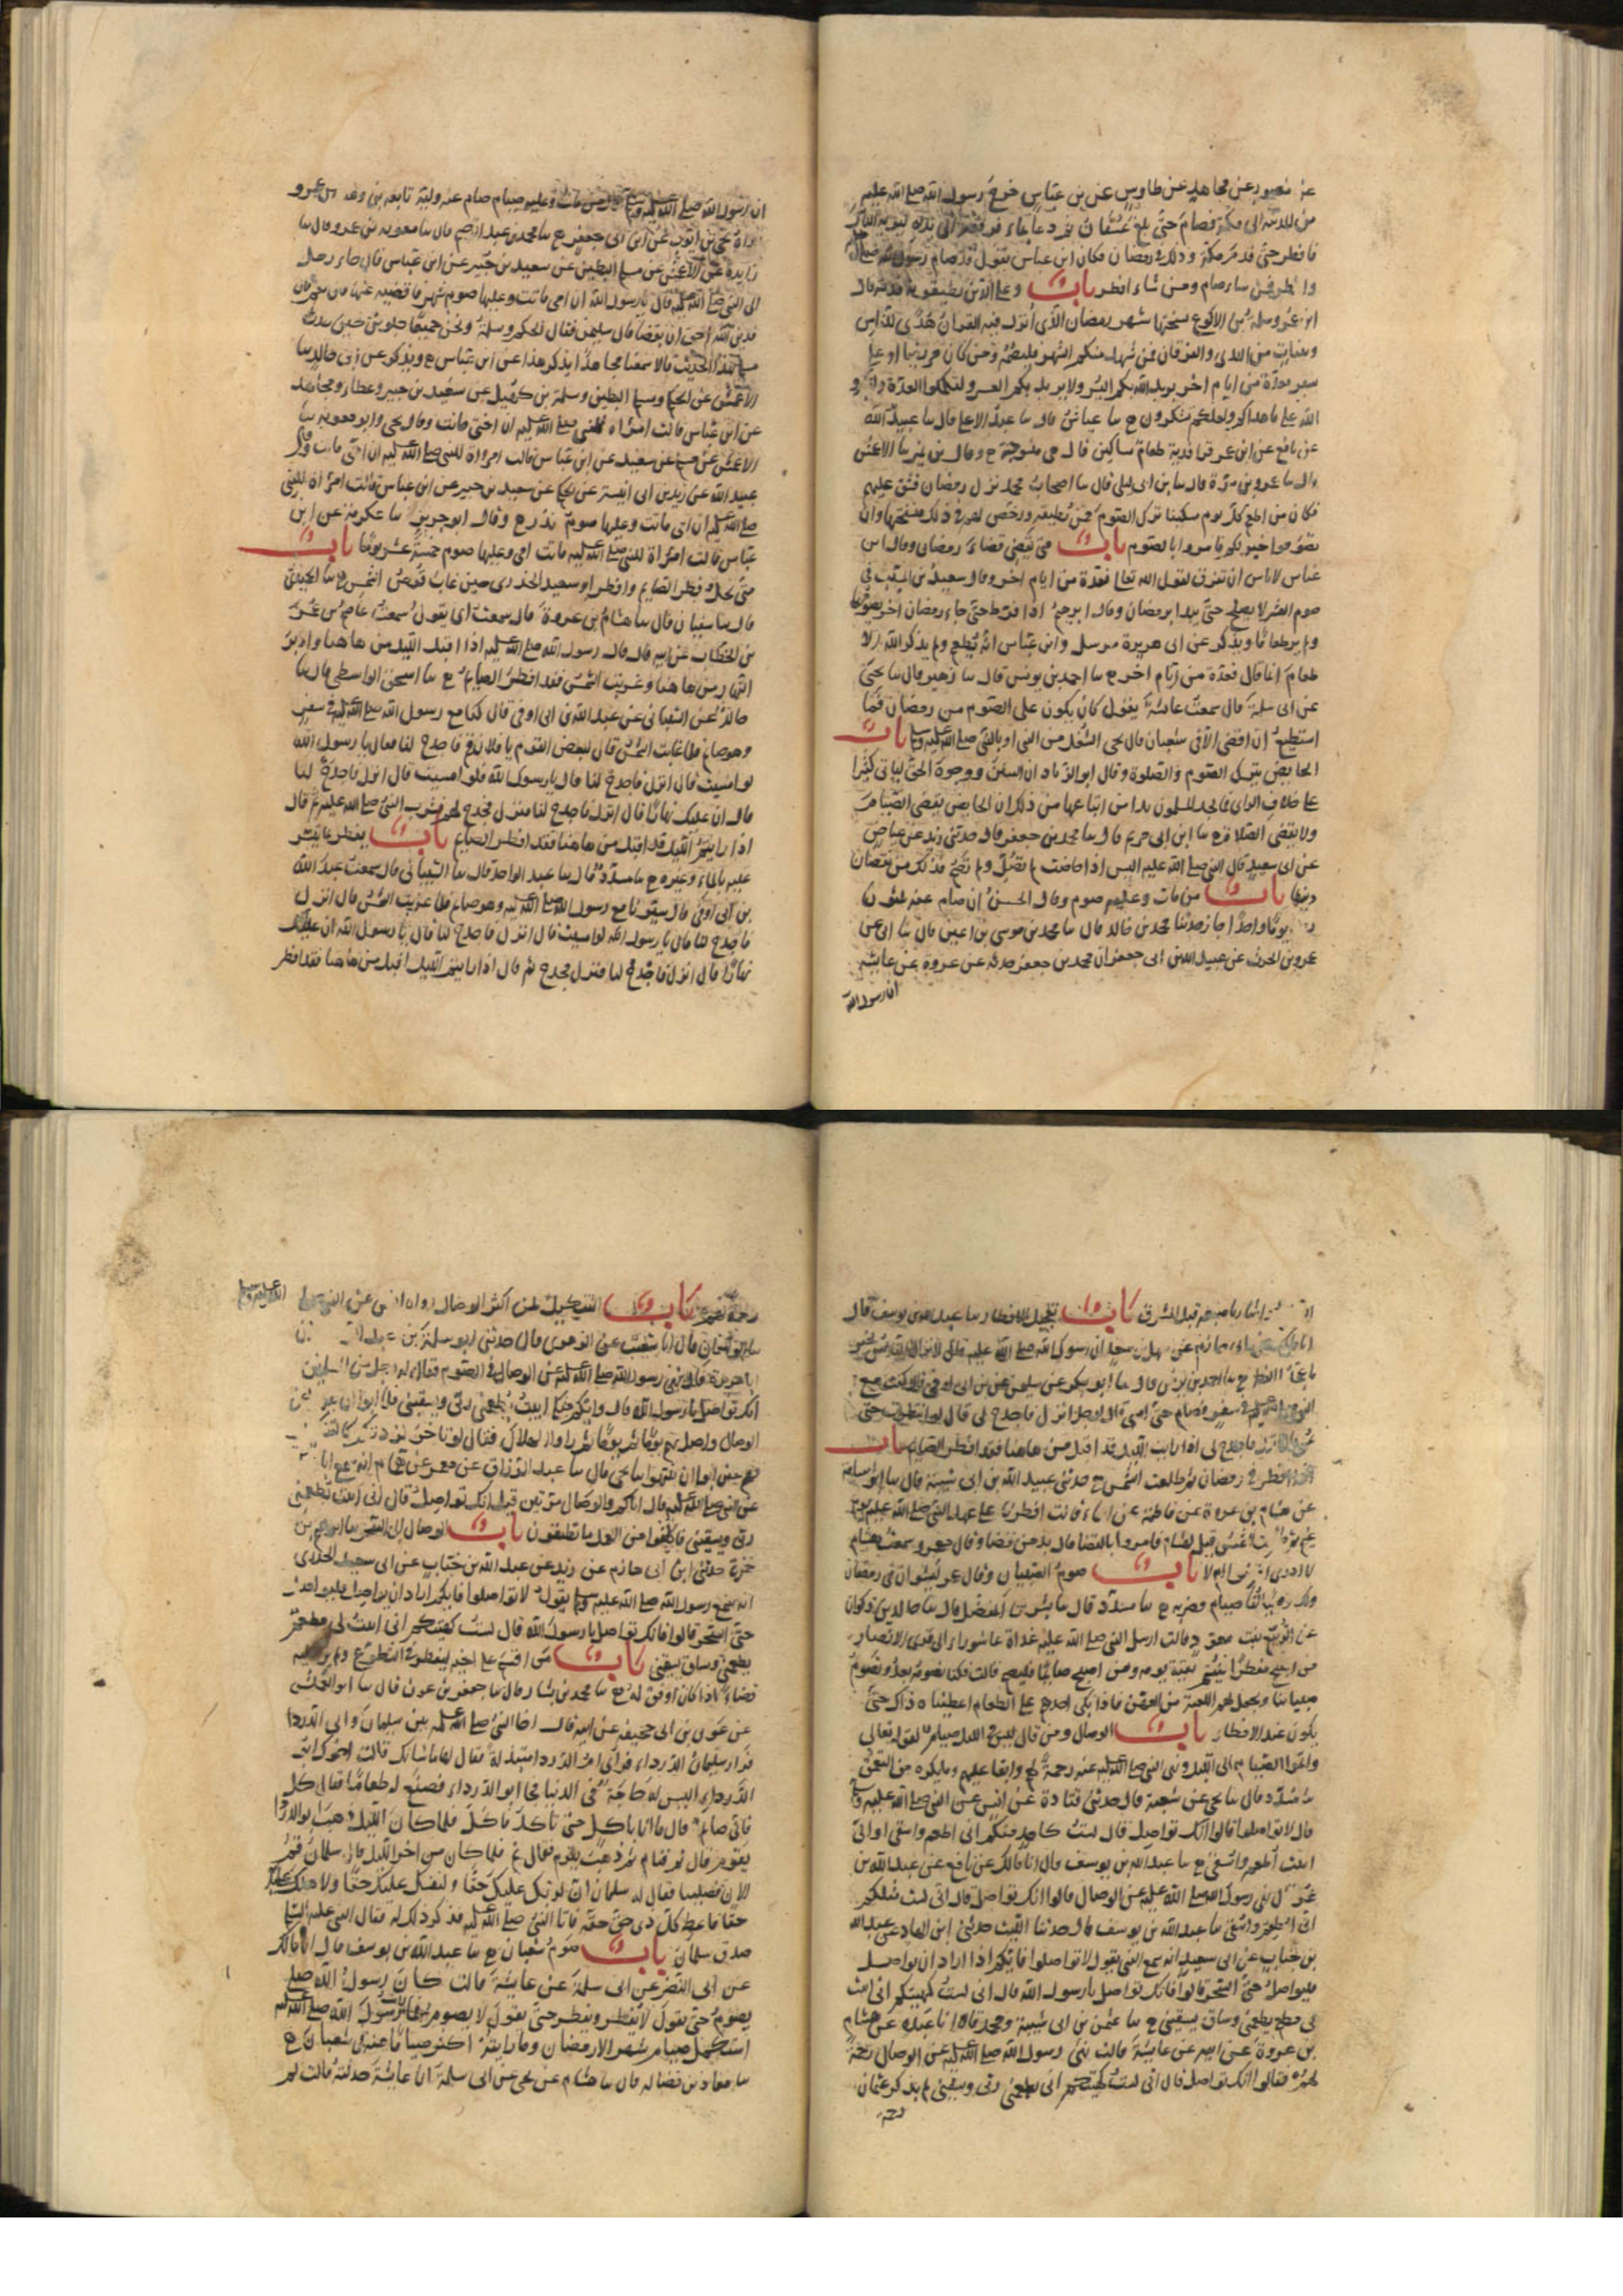 عن منصور عن مجاهد عن طاوس عن بن عباس خرج رسول الله صلى الله عليه
من المدينة الى مكة فصام حتى بلغ عسفان ثم دعا بماء فرفعه الى يده ليريه الناس
فافطر حتى قدم مكة وذلك في رمضان فكان ابن عباس يقول قد صام رسول الله صلى الله
وافطر فمن شاء صام ومن شاء افطر باب وعلى الذين يطيقونه فدية قال
ابن عمر وسلمة بن الاكوع نسختها شهر رمضان الذي انزل فيه القران هدى للناس
وبينات من الهدى والفرقان فمن شهد منكم الشهر فليصمه ومن كان مريضا او على
سفر فعدة من ايام اخر يريد الله بكم اليسر ولا يريد بكم العسر ولتكملوا العدة ولتكبروا
الله على ما هداكم ولعلكم تشكرون ح سا عياش قال سا عبد الاعلى قال سا عبيد الله
عن نافع عن ابن عمر قرا فدية طعام مساكين قال هي منسوخة ح وقال بن نمير سا الاعمش
قال سا عمرو بن مرة قال سا بن ابي ليلى قال سا اصحاب محمد نزل رمضان فشق عليهم
فكان من اطعم كل يوم مسكينا ترك الصوم ممن يطيقه ورخص لهم في ذلك فنسختها وان
تصوموا خير لكم فامروا بالصوم باب متى يقضى قضاء رمضان وقال ابن
عباس لا باس ان يفرق لقول الله تعالى فعدة من ايام اخر وقال سعيد بن المسيب في
صوم العشر لا يصلح حتى يبدا برمضان وقال ابرهيم اذا فرط حتى جاء رمضان اخر يصومهما
ولم ير طعاما ويذكر عن ابى هريرة مرسل وابن عباس انه يطعم ولم يذكر الله الا
طعام انما قال فعدة من ايام اخر ح سا احمد بن يونس قال سا زهير قال سا يحيى
عن ابى سلمة قال سمعت عائشة تقول كان يكون على الصوم من رمضان فما
استطيع ان اقضى الا في شعبان قال يحيى الشغل من النبي او بالنبي صلى الله عليه وسلم باب
الحايض تترك الصوم والصلوة وقال ابو الزناد ان السنن ووجوه الحق لياتى كثيرا
على خلاف الراى فما يجد المسلمون بدا من اتباعها من ذلك ان الحايض تقضى الصيام
ولا تقضى الصلاة ح سا ابن ابى مريم قال سا محمد بن جعفر قال حدثني زيد عن عياض
عن ابى سعيد قال النبي صلى الله عليه اليس اذا حاضت لم تصل ولم تصم فذلك من نقصان
دينها باب من مات وعليه صوم وقال الحسن ان صام عنه ثلثون
يوما واحدا جاز حدثنا محمد بن خالد قال سا محمد بن موسى بن اعين قال سا ابى عن
عمرو بن الحرث عن عبيد الله بن ابى جعفر ان محمد بن جعفر حدثه عن عروة عن عايشة
ان رسول الله
ان رسول الله صلى الله عليه وسلم قال من مات وعليه صيام صام عنه وليه تابعه بن وهب عن عمرو
رواه يحيى بن ايوب عن ابن ابى جعفر ح سا محمد بن عبد الرحيم قال سا معوية بن عمرو قال سا
زايدة عن الاعمش عن مسلم البطين عن سعيد بن جبير عن ابن عباس قال جاء رجل
الى النبي صلى الله عليه فقال يا رسول الله ان امى ماتت وعليها صوم شهر فاقضيه عنها قال نعم قال
فدين الله احق ان يقضا قال سليمن فقال الحكم وسلمة ونحن جميعا جلوس حين حدث
مسلم هذا الحديث قالا سمعنا مجاهدا يذكر هذا عن ابن عباس ح ويذكر عن ابى خالد سا
الاعمش عن الحكم ومسلم البطين وسلمة بن كهيل عن سعيد بن جبير وعطاء ومجاهد
عن ابن عباس قالت امراة للنبي صلى الله عليه ان اختى ماتت وقال يحيى وابو معوية سا
الاعمش عن مسلم عن سعيد عن ابن عباس قالت امراة للنبي صلى الله عليه ان امى ماتت وقال
عبيد الله عن زيد بن ابى انيسة عن الحكم عن سعيد بن جبير عن ابن عباس قالت امراة للنبي
صلى الله عليه ان امى ماتت وعليها صوم نذر ح وقال ابو حريز سا عكرمة عن ابن
عباس قالت امراة للنبي صلى الله عليه ماتت امى وعليها صوم خمسة عشر يوما باب
متى يحل فطر الصايم وافطر ابو سعيد الخدرى حين غاب قرص الشمس ح سا الحميدى
قال سا سفيان قال سا هشام بن عروة قال سمعت ابى يقول سمعت عاصم بن عمر
بن الخطاب عن ابيه قال قال رسول الله صلى الله عليه اذا اقبل الليل من هاهنا وادبر
النهار من هاهنا وغربت الشمس فقد افطر الصايم ح سا اسحق الواسطى قال سا
خالد عن الشيبانى عن عبد الله بن ابى اوفى قال كنا مع رسول الله صلى الله عليه في سفر
وهو صايم فلما غابت الشمس قال لبعض القوم يا فلان قم فاجدح لنا فقال يا رسول الله
لو امسيت قال انزل فاجدح لنا قال يا رسول الله فلو امسيت قال انزل فاجدح لنا
قال ان عليك نهارا قال انزل فاجدح لنا فنزل فجدح لهم فشرب النبي صلى الله عليه ثم قال
اذا رايتم الليل قد اقبل من هاهنا فقد افطر الصايم باب يفطر بما تيسر
عليه بالماء وغيره ح سا مسدد قال سا عبد الواحد قال سا الشيبانى قال سمعت عبد الله
بن ابى اوفى قال سرنا مع رسول الله صلى الله عليه وهو صايم فلما غربت الشمس قال انزل
فاجدح لنا قال يا رسول الله لو امسيت قال انزل فاجدح لنا قال يا رسول الله ان عليك
نهارا قال انزل فاجدح لنا فنزل فجدح ثم قال اذا رايتم الليل اقبل من هاهنا فقد افطر
اشار باصبعه قبل المشرق باب تعجيل الافطار سا عبد الله بن يوسف قال
انا ملك عن ابى حازم عن سهل بن سعد ان رسول الله صلى الله عليه قال لا يزال الناس بخير
ما عجلوا الفطر ح سا احمد بن يونس قال سا ابو بكر عن سليمن عن بن ابى اوفى قال كنت مع
النبي صلى الله عليه في سفر فصام حتى امسى قال لرجل انزل فاجدح لى قال لو انتظرت حتى
تمسى قال انزل فاجدح لى اذا رايت الليل قد اقبل من هاهنا فقد افطر الصايم باب
اذا افطر في رمضان ثم طلعت الشمس ح حدثني عبيد الله بن ابى شيبة قال سا ابو اسامة
عن هشام بن عروة عن فاطمة عن اسماء قالت افطرنا على عهد النبي صلى الله عليه يوم
غيم ثم طلعت الشمس قيل لهشام فامروا بالقضا قال بد من قضا وقال معمر وسمعت هشام
لا ادرى اقضوا ام لا باب صوم الصبيان وقال عمر لنشوان في رمضان
ويلك وصبياننا صيام فضربه ح سا مسدد قال سا بشر بن المفضل قال سا خالد بن ذكوان
عن الربيع بنت معوذ قالت ارسل النبي صلى الله عليه غداة عاشوراء الى قرى الانصار
من اصبح مفطرا فليتم بقية يومه ومن اصبح صايما فليصم قالت فكنا نصومه بعد ونصوم
صبياننا ونجعل لهم اللعبة من العهن فاذا بكى احدهم على الطعام اعطيناه ذاك حتى
يكون عند الافطار باب الوصال ومن قال ليس في الليل صيام لقوله تعالى
واتموا الصيام الى الليل ونهى النبي صلى الله عليه عنه رحمة لهم وابقا عليهم وما يكره من التعمق
سا مسدد قال سا يحيى عن شعبة قال حدثني قتادة عن انس عن النبي صلى الله عليه وسلم
قال لا تواصلوا قالوا انك تواصل قال لست كاحد منكم انى اطعم واسقى او انى
ابيت اطعم واسقى ح سا عبد الله بن يوسف قال انا مالك عن نافع عن عبد الله بن
عمر قال نهى رسول الله صلى الله عليه عن الوصال قالوا انك تواصل قال انى لست مثلكم
انى اطعم واسقى سا عبد الله بن يوسف قال حدثنا الليث حدثني ابن الهاد عن عبد الله
بن خباب عن ابى سعيد انه سمع النبي يقول لا تواصلوا فايكم اذا اراد ان يواصل
فليواصل حتى السحر قالوا فانك تواصل يا رسول الله قال انى لست كهيئتكم انى ابيت
لى مطعم يطعمنى وساق يسقين ح سا عثمن بن ابى شيبة ومحمد قالا انا عبدة عن هشام
بن عروة عن ابيه عن عايشة قالت نهى رسول الله صلى الله عليه عن الوصال رحمة
لهم فقالوا انك تواصل قال انى لست كهيئتكم انى يطعمنى ربى ويسقين لم يذكر عثمان
رحمة
رحمة لهم باب التنكيل لمن اكثر الوصال رواه انس عن النبي صلى الله عليه وسلم
سا ابو اليمان قال انا شعيب عن الزهرى قال حدثنى ابو سلمة بن عبد الرحمن ان
ابا هريرة قال نهى رسول الله صلى الله عليه عن الوصال في الصوم فقال له رجل من المسلمين
انك تواصل يا رسول الله قال وايكم مثلى انى ابيت يطعمنى ربى ويسقينى فلما ابوا ان ينتهوا عن
الوصال واصل بهم يوما ثم يوما ثم راوا الهلال فقال لو تاخر لزدتكم كالتنكيل
لهم حين ابوا ان ينتهوا سا يحيى قال سا عبد الرزاق عن معمر عن همام انه سمع ابا
عن النبي صلى الله عليه قال اياكم والوصال مرتين قيل انك تواصل قال انى ابيت يطعمنى
ربى ويسقينى فاكلفوا من العمل ما تطيقون باب الوصال الى السحر سا ابرهيم بن
حمزة حدثنى ابن ابى حازم عن يزيد عن عبد الله بن خباب عن ابى سعيد الخدرى
انه سمع رسول الله صلى الله عليه وسلم يقول لا تواصلوا فايكم اراد ان يواصل فليواصل
حتى السحر قالوا فانك تواصل يا رسول الله قال لست كهيئتكم انى ابيت لى مطعم
يطعمنى وساق يسقينى باب من اقسم على اخيه ليفطر في التطوع ولم ير عليه
قضاء اذا كان اوفق له ح سا محمد بن بشار قال سا جعفر بن عون قال سا ابو العميس
عن عون بن ابى جحيفة عن ابيه قال اخا النبي صلى الله عليه بين سلمان وابى الدرداء
فزار سلمان ابا الدرداء فراى ام الدرداء متبذلة فقال لها ما شانك قالت اخوك ابو
الدرداء ليس له حاجة في الدنيا فجا ابو الدرداء فصنع له طعاما فقال كل
فانى صايم قال ما انا باكل حتى تاكل فاكل فلما كان الليل ذهب ابو الدرداء
يقوم قال نم فنام ثم ذهب يقوم فقال نم فلما كان من اخر الليل قال سلمان قم
الان فصليا فقال له سلمان ان لربك عليك حقا ولنفسك عليك حقا ولاهلك عليك
حقا فاعط كل ذى حق حقه فاتا النبي صلى الله عليه فذكر ذلك له فقال النبي عليه السلام
صدق سلمان باب صوم شعبان ح سا عبد الله بن يوسف قال انا مالك
عن ابى النضر عن ابى سلمة عن عايشة قالت كان رسول الله صلى
يصوم حتى نقول لا يفطر ويفطر حتى نقول لا يصوم فما رايت رسول الله صلى الله عليه
استكمل صيام شهر الا رمضان وما رايته اكثر صياما منه في شعبان ح
سا معاذ بن فضاله قال سا هشام عن يحيى عن ابى سلمة ان عايشة حدثته قالت لم